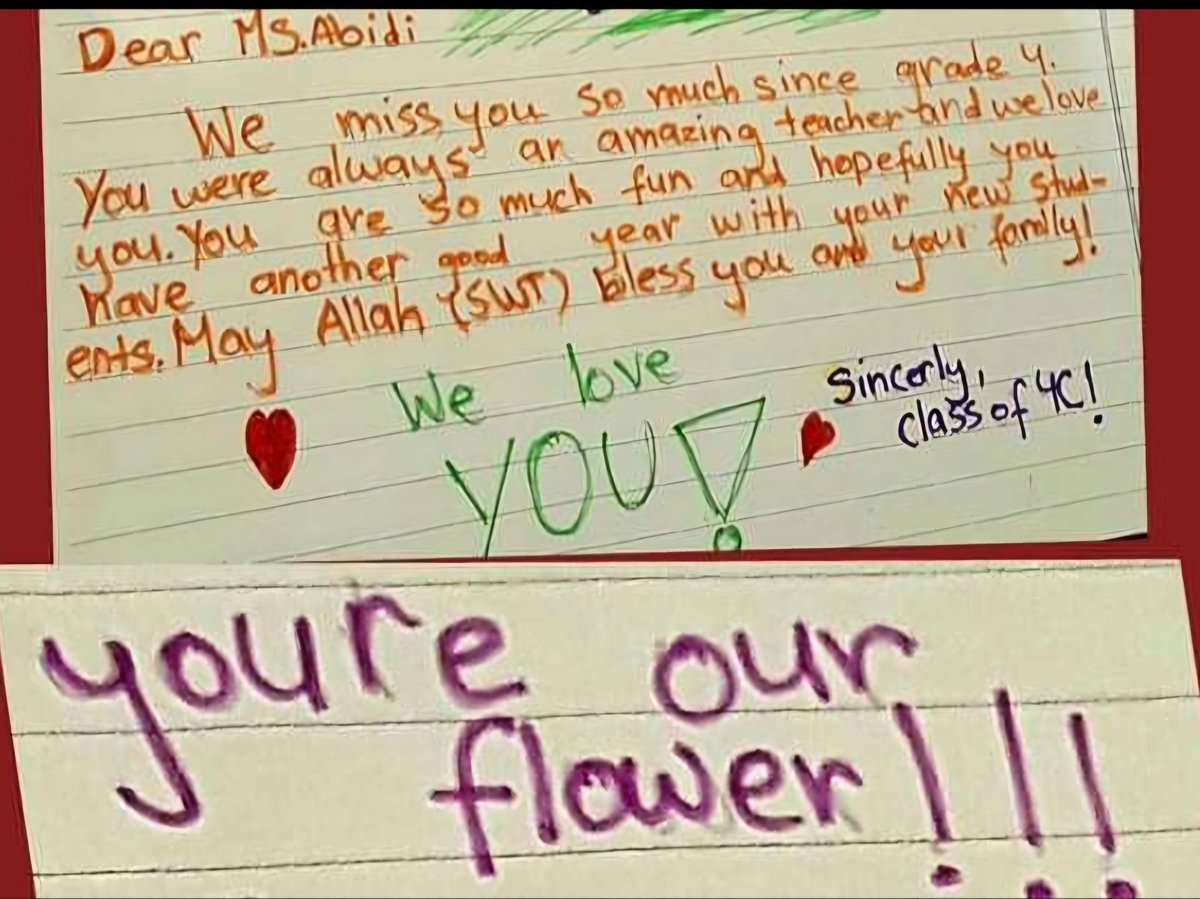 Dear MS.Abidi
We miss you so much since grade 4.
You were always an amazing teacher and we love
you. You are so much fun and hopefully you
have another good year with your new stud-
ents. May Allah (SWT) bless you and your family!
We love
YOU!
Sincerly,
class of 4C!
youre our
flower!!!